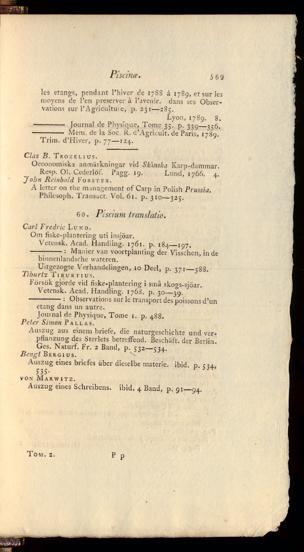 Piscinæ. 569
les etangs, pendant l'hiver de 1788 à 1789, et sur les
moyens de l'en preserver à l'avenir. dans ses Obser-
vations sur l'Agriculture, p. 231—285.
Lyon, 1789. 8.
——— Journal de Physique, Tome 35. p. 339—356.
——— Mem. de la Soc. R. d'Agricult. de Paris, 1789.
Trim. d'Hiver, p. 77—124.
Clas B. TROZELIUS.
Oeconomiska anmärkningar vid Skånska Karp-dammar.
Resp. Ol. Cederlöf. Pagg. 19. Lund, 1766. 4.
John Reinhold FORSTER.
A letter on the management of Carp in Polish Prussia.
Philosoph. Transact. Vol. 61. p. 310—325.
60. Piscium translatio.
Carl Fredric LUND.
Om fiske-plantering uti insjöar.
Vetensk. Acad. Handling. 1761. p. 184—197.
———: Manier van voortplanting der Visschen, in de
binnenlandsche wateren.
Uitgezogte Verhandelingen, 10 Deel, p. 371—588.
Tiburtz TIBURTIUS.
Försök gjorde vid fiske-plantering i små skogs-sjöar.
Vetensk. Acad. Handling. 1768. p. 30—39.
———: Observations sur le transport des poissons d'un
etang dans un autre.
Journal de Physique, Tome 1. p. 488.
Peter Simon PALLAS.
Auszug aus einem briefe, die naturgeschichte und ver-
pflanzung des Sterlets betreffend. Beschäft. der Berlin.
Ges. Naturf. Fr. 2 Band, p. 532—534.
Bengt BERGIUS.
Auszug eines briefes über dieselbe materie. ibid. p. 534,
535.
VON MARWITZ.
Auszug eines Schreibens. ibid. 4 Band, p. 91—94.
TOM. 2. P p